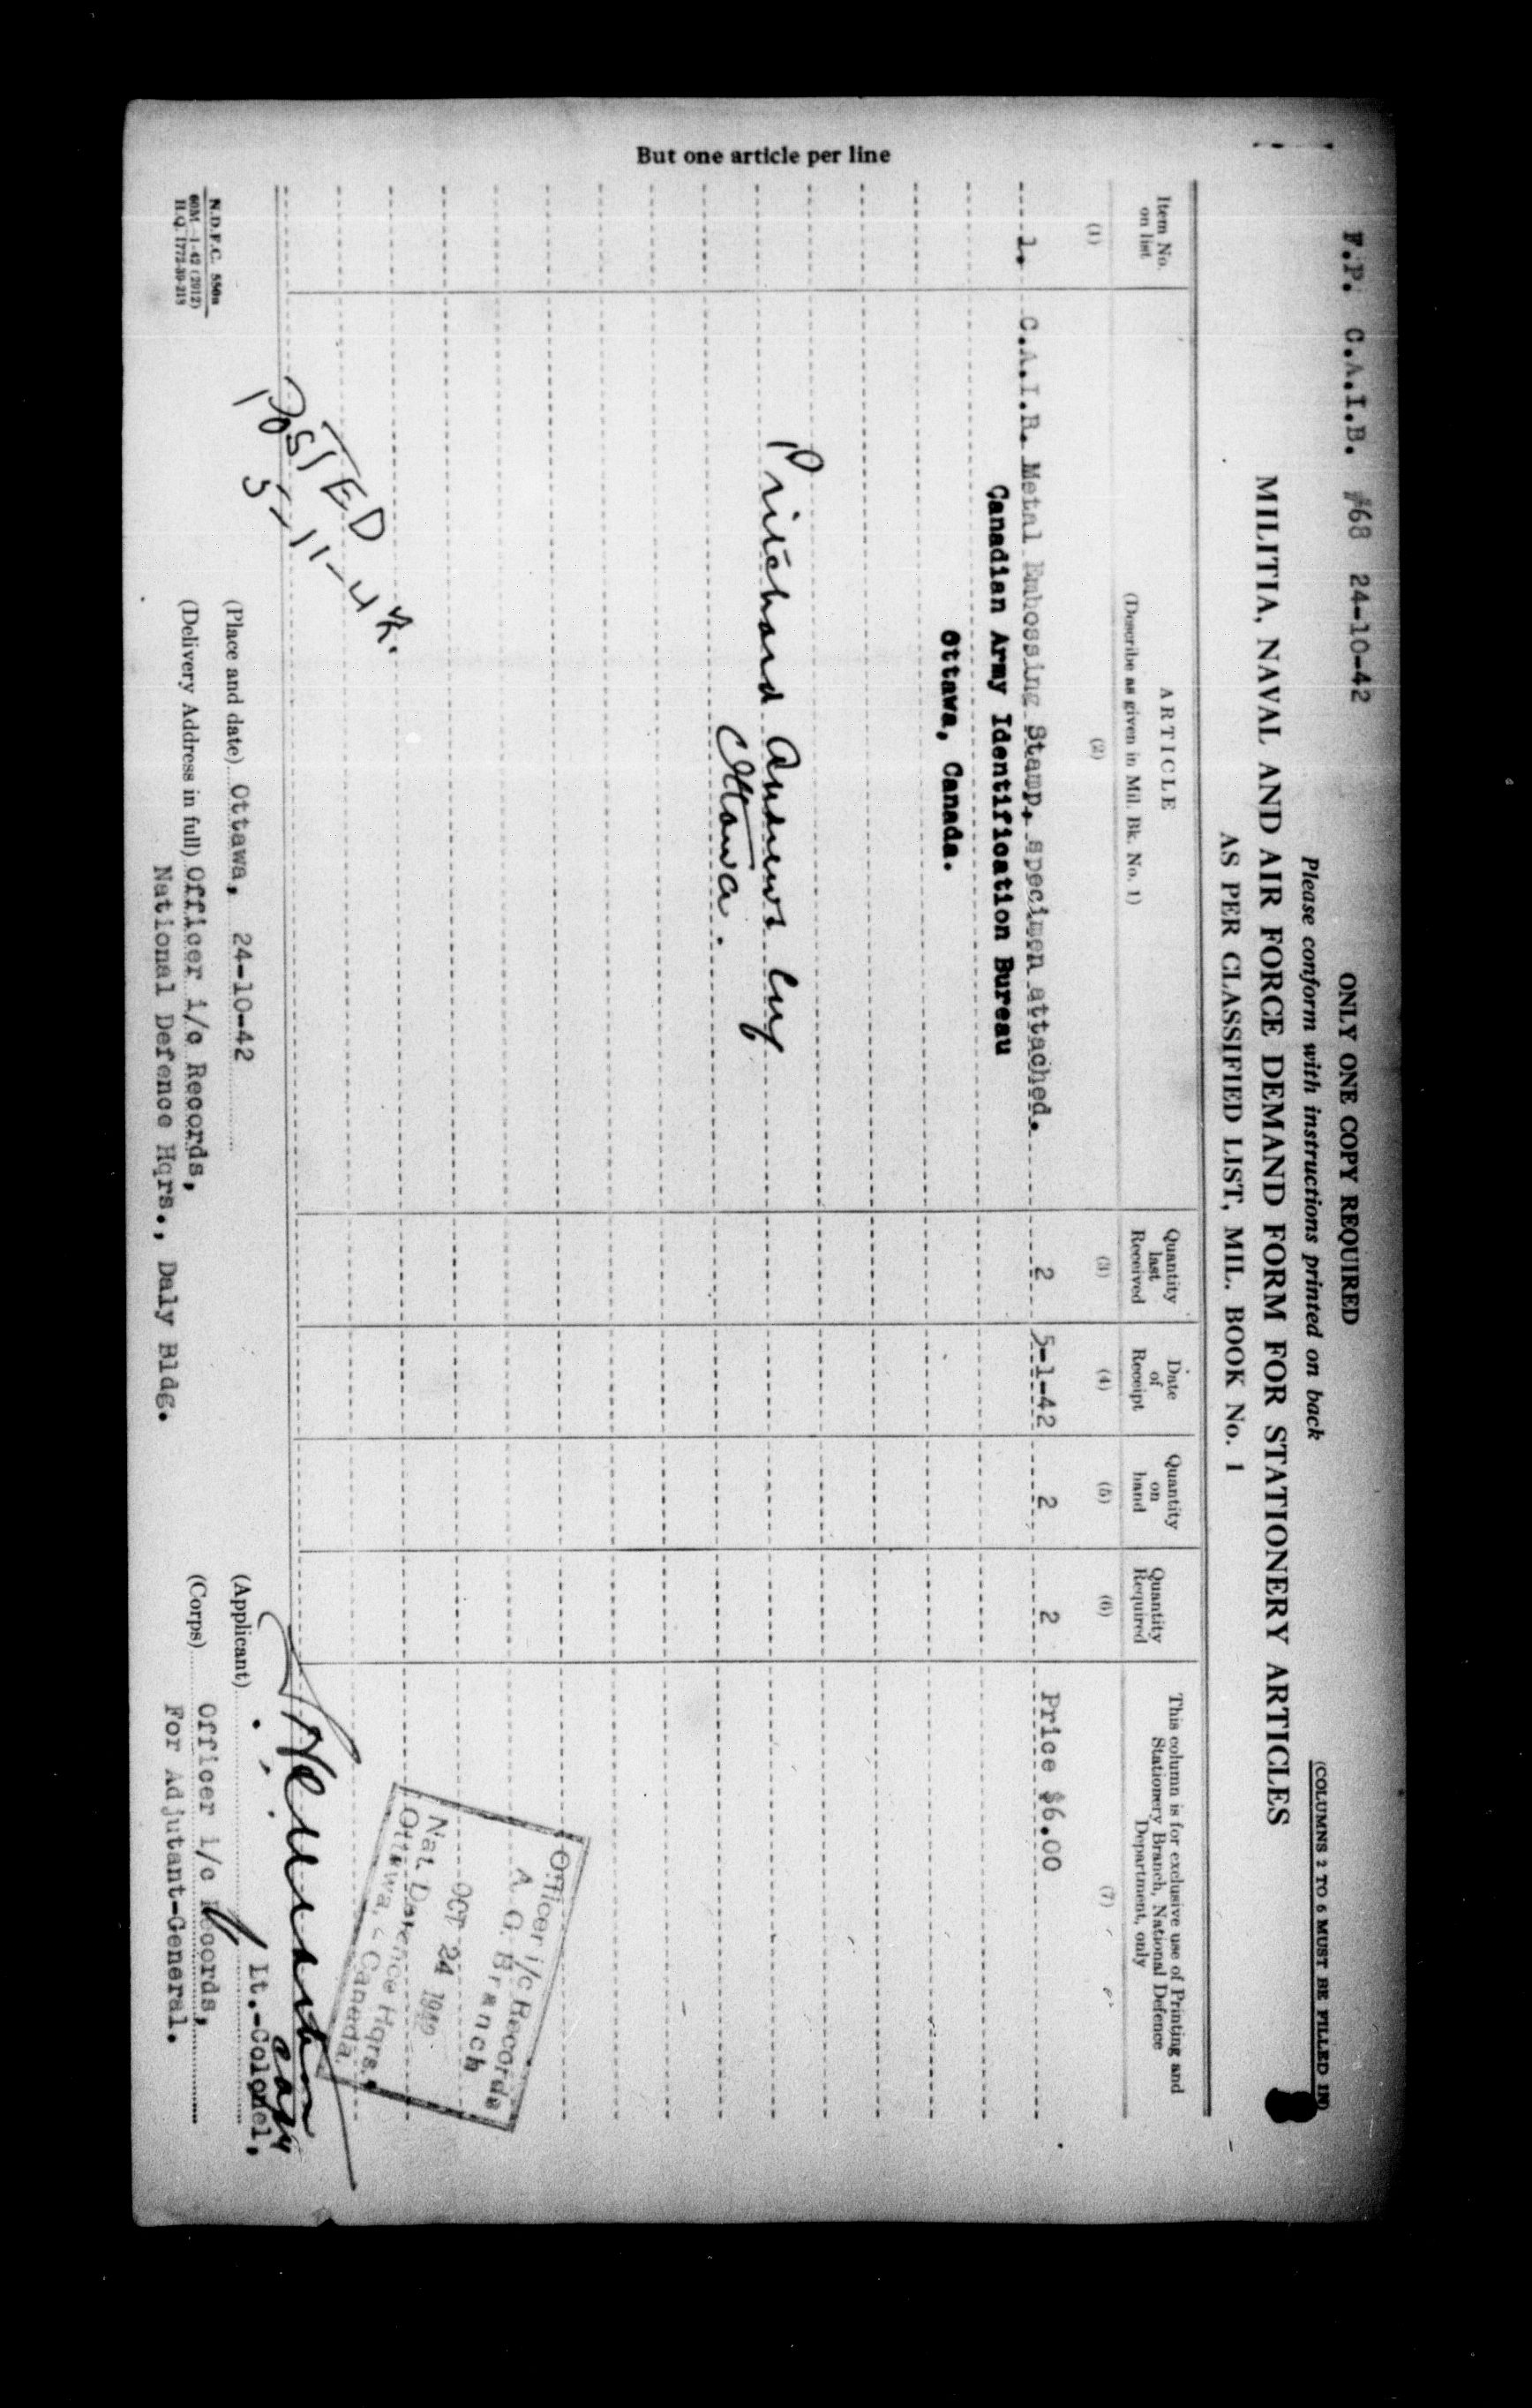 F.P. C.A.I.B. #68 24-10-42
ONLY ONE COPY REQUIRED
(COLUMNS 2 TO 6 MUST BE FILLED IN)
Please conform with instructions printed on back
MILITIA, NAVAL AND AIR FORCE DEMAND FORM FOR STATIONERY ARTICLES
AS PER CLASSIFIED LIST, MIL. BOOK No. 1
But one article per line
Item No. on list
(1)
ARTICLE
(Describe as given in Mil. Bk. No. 1)
(2)
Quantity last Received
(3)
Date of Receipt
(4)
Quantity on hand
(5)
Quantity Required
(6)
This column is for exclusive use of Printing and
Stationery Branch, National Defence
Department, only
(7)
1. C.A.I.B. Metal Embossing Stamp, specimen attached. 2 5-1-42 2 2 Price $6.00
Canadian Army Identification Bureau
Ottawa, Canada.
Pritchard Andrews Coy
Ottawa.
POSTED
5-11-42.
Officer i/c Records
A. G. Branch
OCT 24 1942
Nat. Defence Hqrs.,
Ottawa, Canada.
(Place and date) Ottawa, 24-10-42
(Delivery Address in full) Officer i/c Records,
National Defence Hqrs., Daly Bldg.
(Applicant) Lt.-Colonel,
(Corps) Officer i/c Records,
For Adjutant-General.
N.D.F.C. 550a
60M—1-42 (2912)
H.Q. 1772-39-218